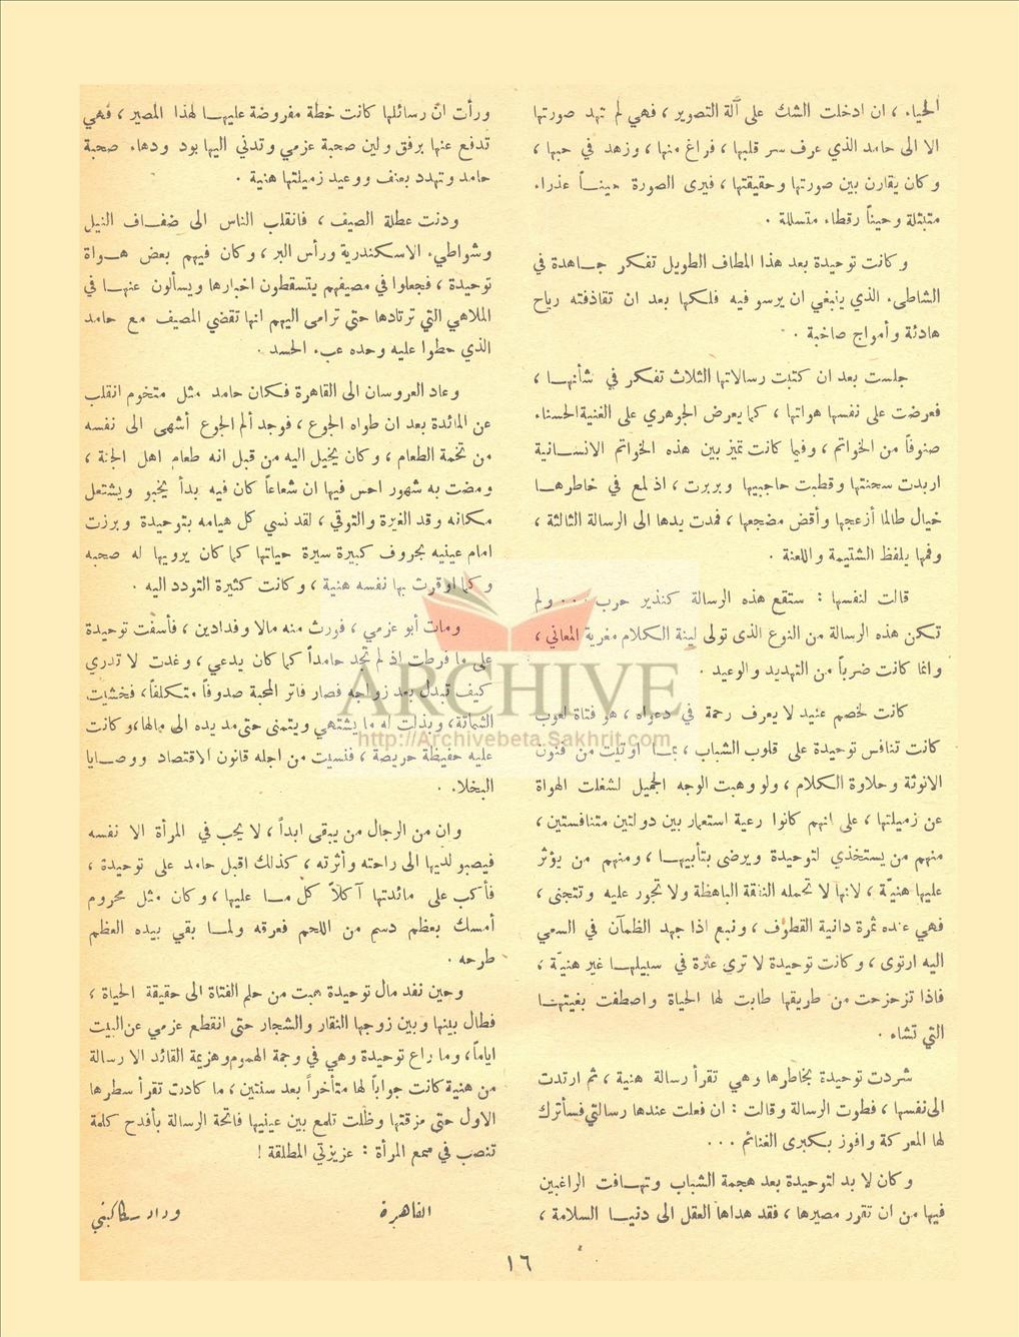 الحياء ، ان ادخلت الشك على آلة التصوير ، فهي لم تهد صورتها
الا الى حامد الذي عرف سر قلبها ، فراغ منها ، وزهد في حبها ،
وكان يقارن بين صورتها وحقيقتها ، فيرى الصورة حيناً عذراء
متبتلة وحيناً رقطاء متسللة .
وكانت توحيدة بعد هذا المطاف الطويل تفكر جاهدة في
الشاطىء الذي ينبغي ان يرسو فيه فلكها بعد ان تقاذفته رياح
هادئة وأمواج صاخبة .
جلست بعد ان كتبت رسالاتها الثلاث تفكر في شأنها ،
فعرضت على نفسها هواتها ، كما يعرض الجوهري على الغنية الحسناء
صنوفاً من الخواتم ، وفيما كانت تميز بين هذه الخواتم الانسانية
اربدت سحنتها وقطبت حاجبيها وبربرت ، اذ لمع في خاطرها
خيال طالما أزعجها وأقض مضجعها ، فمدت يدها الى الرسالة الثالثة ،
وفمها يلفظ الشتيمة واللعنة .
قالت لنفسها : ستقع هذه الرسالة كنذير حرب ... ولم
تكن هذه الرسالة من النوع الذى تولى لينة الكلام مغرية المعاني ،
وانما كانت ضرباً من التهديد والوعيد .
كانت لخصم عنيد لا يعرف رحمة في دعواه ، هو فتاة لعوب
كانت تنافس توحيدة على قلوب الشباب ، بما اوتيت من فنون
الانوثة وحلاوة الكلام ، ولو وهبت الوجه الجميل لشغلت الهواة
عن زميلتها ، على انهم كانوا رعية استعمار بين دولتين متنافستين ،
منهم من يستخذي لتوحيدة ويرضى بتأبيها ، ومنهم من يؤثر
عليها هنيّة ، لانها لا تحمله النفقة الباهظة ولا تجور عليه وتتجنى ،
فهي عنده ثمرة دانية القطوف ، ونبع اذا جهد الظمآن في السعي
اليه ارتوى ، وكانت توحيدة لا ترى عثرة في سبيلها غير هنيّة ،
فاذا تزحزحت من طريقها طابت لها الحياة واصطفت بغيتها
التي تشاء .
شردت توحيدة بخاطرها وهي تقرأ رسالة هنية ، ثم ارتدت
الى نفسها ، فطوت الرسالة وقالت : ان فعلت عندها رسالتي فسأترك
لها المعركة وافوز بكبرى الغنائم ...
وكان لا بد لتوحيدة بعد هجمة الشباب وتهافت الراغبين
فيها من ان تقرر مصيرها ، فقد هداها العقل الى دنيا السلامة ،
ورأت انّ رسائلها كانت خطة مفروضة عليها لهذا المصير ، فهي
تدفع عنها برفق ولين صحبة عزمي وتدني اليها بود ودهاء صحبة
حامد وتهدد بعنف ووعيد زميلتها هنية .
ودنت عطلة الصيف ، فانقلب الناس الى ضفاف النيل
وشواطىء الاسكندرية ورأس البر ، وكان فيهم بعض هواة
توحيدة ، فجعلوا في مصيفهم يتسقطون اخبارها ويسألون عنها في
الملاهي التي ترتادها حتى ترامى اليهم انها تقضي المصيف مع حامد
الذي حطوا عليه وحده عبء الحسد .
وعاد العروسان الى القاهرة فكان حامد مثل متخوم انقلب
عن المائدة بعد ان طواه الجوع ، فوجد ألم الجوع أشهى الى نفسه
من تخمة الطعام ، وكان يخيل اليه من قبل انه طعام اهل الجنة ،
ومضت به شهور احس فيها ان شعاعاً كان فيه بدأ يخبو ويشتعل
مكانه وقد الغيرة والتوقي ، لقد نسي كل هيامه بتوحيدة وبرزت
امام عينيه بحروف كبيرة سيرة حياتها كما كان يرويها له صحبه
وكما اوقرت بها نفسه هنية ، وكانت كثيرة التودد اليه .
ومات أبو عزمي ، فورث منه مالا وفدادين ، فأسفت توحيدة
على ما فرطت اذ لم تجد حامداً كما كان يدعي ، وغدت لا تدري
كيف تبدل بعد زواجه فصار فاتر المحبة صدوفاً متكلفاً ، فخشيت
الشماتة ، وبذلت له ما يشتهي ويتمنى حتى مد يده الى مالها ، وكانت
عليه حفيظة حريصة ، فنسيت من اجله قانون الاقتصاد ووصايا
البخلاء .
وان من الرجال من يبقى ابداً ، لا يحب في المرأة الا نفسه
فيصبو لديها الى راحته وأثرته ، كذلك اقبل حامد على توحيدة ،
فأكب على مائدتها آكلاً كل ما عليها ، وكان مثل محروم
أمسك بعظم دسم من اللحم فعرقه ولما بقي بيده العظم
طرحه .
وحين نفد مال توحيدة هبت من حلم الفتاة الى حقيقة الحياة ،
فطال بينها وبين زوجها النقار والشجار حتى انقطع عزمي عن البيت
اياماً ، وما راع توحيدة وهي في وجمة الهموم وهزيمة القائد الا رسالة
من هنية كانت جواباً لها متأخراً بعد سنتين ، ما كادت تقرأ سطرها
الاول حتى مزقتها وظلت تلمع بين عينيها فاتحة الرسالة بأفدح كلمة
تنصب في مسمع المرأة : عزيزتي المطلقة !
القاهرة وداد سكاكيني
١٦
ARCHIVE
http://Archivebeta.Sakhrit.com